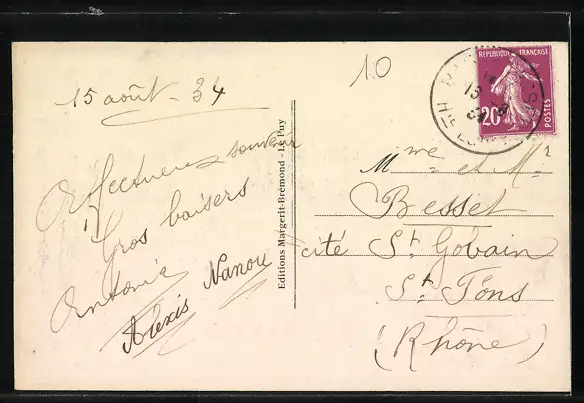 10
15 août - 34
Affectueux souvenir
Gros baisers
Antonia
Alexis Nanou
Editions Margerit-Brémond - Le Puy
REPUBLIQUE FRANÇAISE
20c
POSTES
Mme et Mr
Besset
cité St Gobain
St Fons
(Rhône)